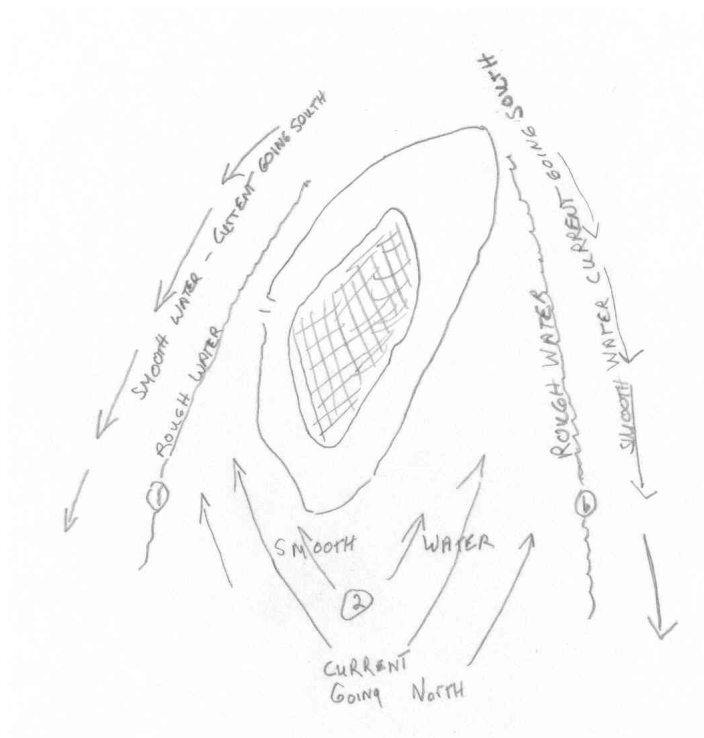 SMOOTH WATER - CURRENT GOING SOUTH
ROUGH WATER
SMOOTH WATER CURRENT GOING SOUTH
ROUGH WATER
SMOOTH WATER
2
CURRENT
GOING NORTH